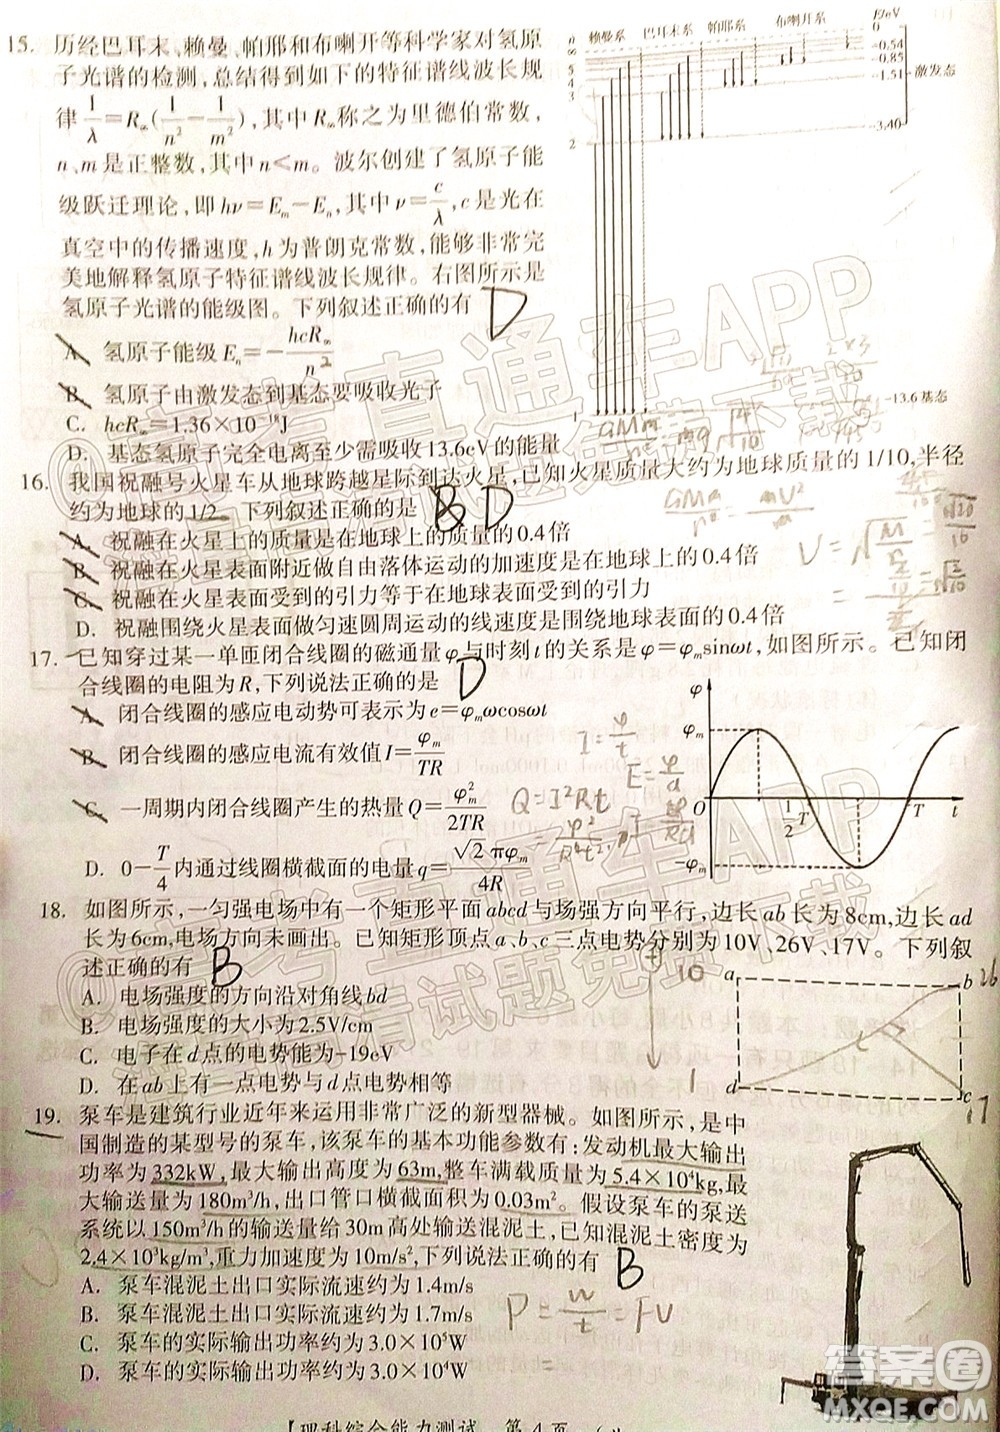 15. 历经巴耳末、赖曼、帕邢和布喇开等科学家对氢原
子光谱的检测,总结得到如下的特征谱线波长规
律1/λ=R∞(1/n²-1/m²)。其中R∞称为里德伯常数,
n、m是正整数,且有n<m。波尔创建了氢原子能
级跃迁理论,即hν=Em-En,其中ν=c/λ,c是光在
真空中的传播速度,h为普朗克常数,能够非常完
美地解释氢原子特征谱线波长规律。右图所示是
氢原子光谱的能级图。下列叙述正确的有 D
A. 氢原子能级En=-hcR∞/n²
B. 氢原子由激发态到基态要吸收光子
C. hcR∞=1.36×10⁻¹⁸J
D. 基态氢原子完全电离至少需吸收13.6eV的能量
n 赖曼系 巴耳末系 帕邢系 布喇开系 E/eV
∞ 0
5 -0.54
4 -0.85
3 -1.51 激发态
2 -3.40
1 -13.6基态
16. 我国祝融号火星车从地球跨越星际到达火星,已知火星质量大约为地球质量的1/10,半径
约为地球的1/2。下列叙述正确的是 B D
A. 祝融在火星上的质量是在地球上的质量的0.4倍
B. 祝融在火星表面附近做自由落体运动的加速度是在地球上的0.4倍
C. 祝融在火星表面受到的引力等于在地球表面的引力
D. 祝融围绕火星表面做匀速圆周运动的线速度是围绕地球表面的0.4倍
17. 已知穿过某一单匝闭合线圈的磁通量φ与时刻t的关系是φ=φm sinωt,如图所示。已知闭
合线圈的电阻为R,下列说法正确的是 D
A. 闭合线圈的感应电动势可表示为e=φmωcosωt
B. 闭合线圈的感应电流有效值I=φm/TR
C. 一周期内闭合线圈产生的热量Q=φm²/2TR
D. 0-T/4内通过线圈横截面的电量q=√2πφm/4R
φ
φm
O 1/2T T t
-φm
I=φ/t
Q=I²Rt
18. 如图所示,一匀强电场中有一个矩形平面abcd与场强方向平行,边长ab长为8cm,边长ad
长为6cm,电场方向未画出。已知矩形顶点a、b、c三点电势分别为10V、26V、17V。下列叙
述正确的有 B
A. 电场强度的方向沿对角线bd
B. 电场强度的大小为2.5V/cm
C. 电子在d点的电势能为-19eV
D. 在ab上有一点电势与d点电势相等
10 a b 26
1 d c 17
19. 泵车是建筑行业近年来运用非常广泛的新型器械。如图所示,是中
国制造的某型号的泵车,该泵车的基本功能参数有:发动机最大输出
功率为332kW,最大输出高度为63m,整车满载质量为5.4×10⁴kg,最大
输送量为180m³/h,出口管口横截面积为0.03m²。假设泵车的泵送
系统以150m³/h的输送量给30m高处输送混泥土,已知混泥土密度为
2.4×10³kg/m³,重力加速度为10m/s²,下列说法正确的有 B
A. 泵车混泥土出口实际流速约为1.4m/s
B. 泵车混泥土出口实际流速约为1.7m/s
C. 泵车的实际输出功率约为3.0×10⁵W
D. 泵车的实际输出功率约为3.0×10⁴W
P=W/t=FV
【理科综合能力测试 第4页
答案圈